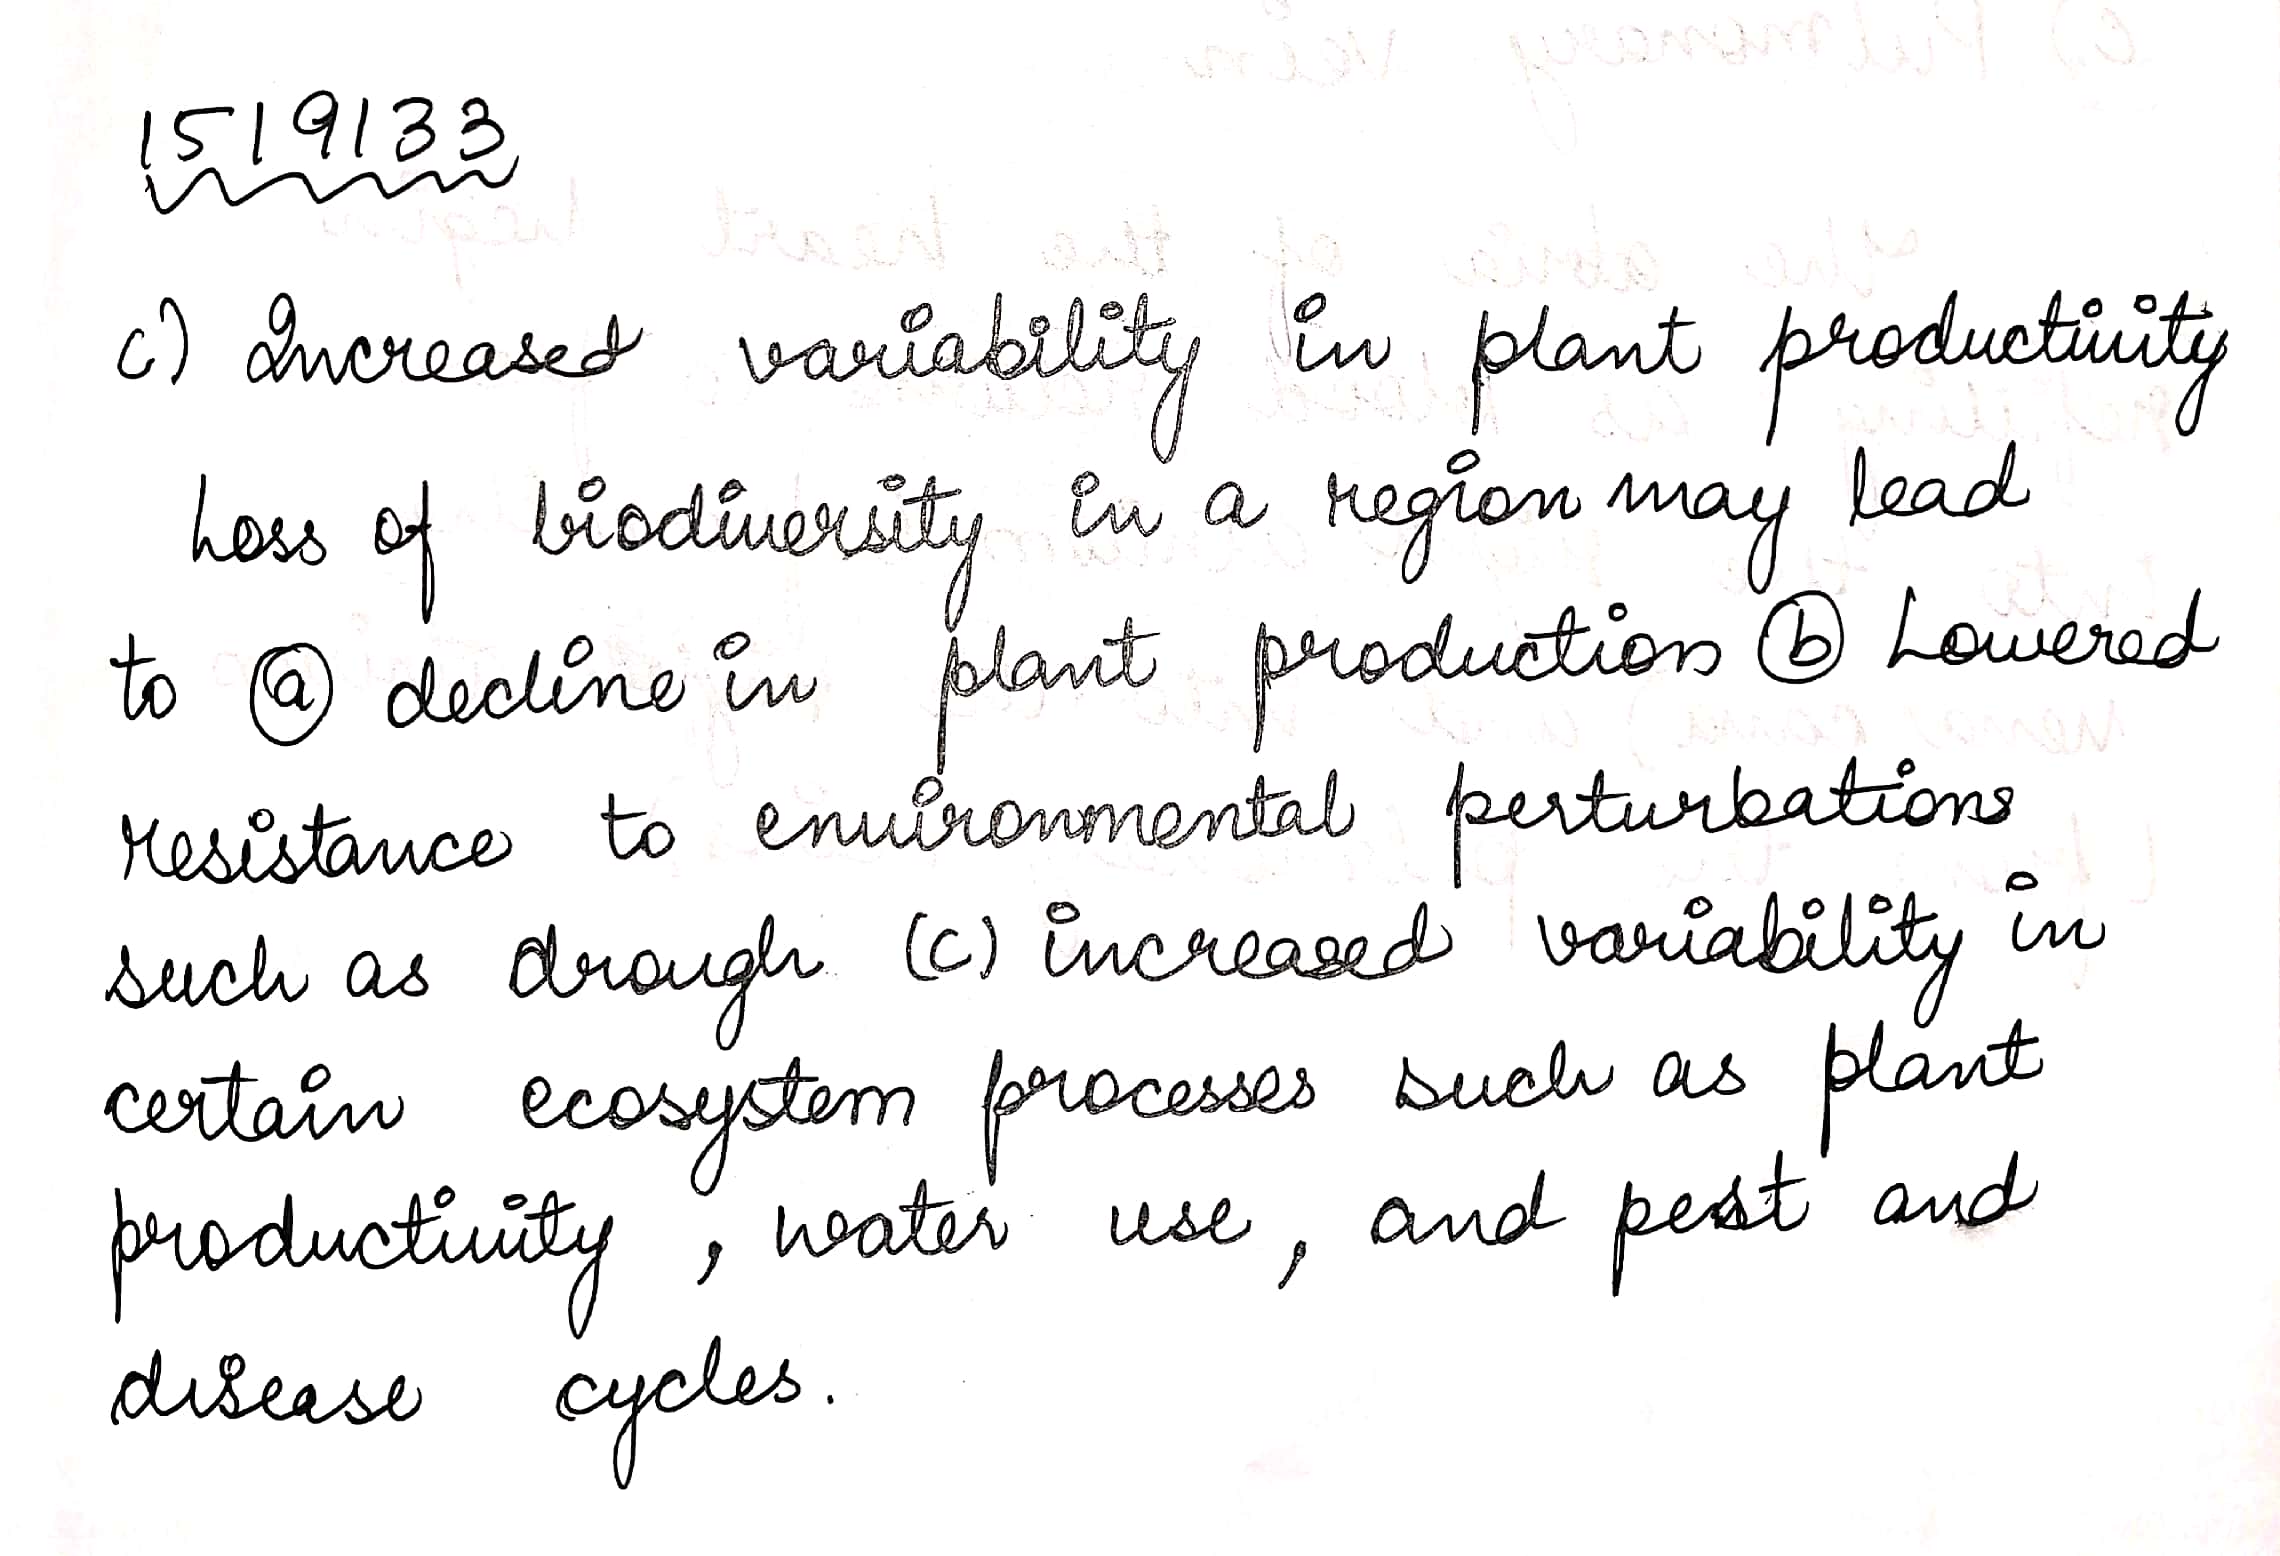 1519133
c) Increased variability in plant productivity
Loss of biodiversity in a region may lead
to ⓐ decline in plant production ⓑ Lowered
resistance to environmental perturbations
such as drough (c) increased variability in
certain ecosystem processes such as plant
productivity, water use, and pest and
disease cycles.